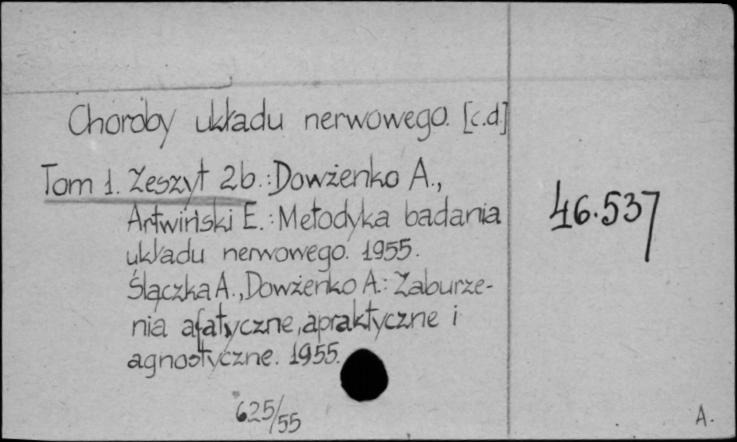 Choroby układu nerwowego. [c.d]
Tom 1. Zeszyt 2b.: Dowżenko A.,
Artwiński E.: Metodyka badania
układu nerwowego. 1955.
Ślączka A., Dowżenko A.: Zaburze-
nia afatyczne, apraktyczne i
agnostyczne. 1955.
46.537
625/55
A.